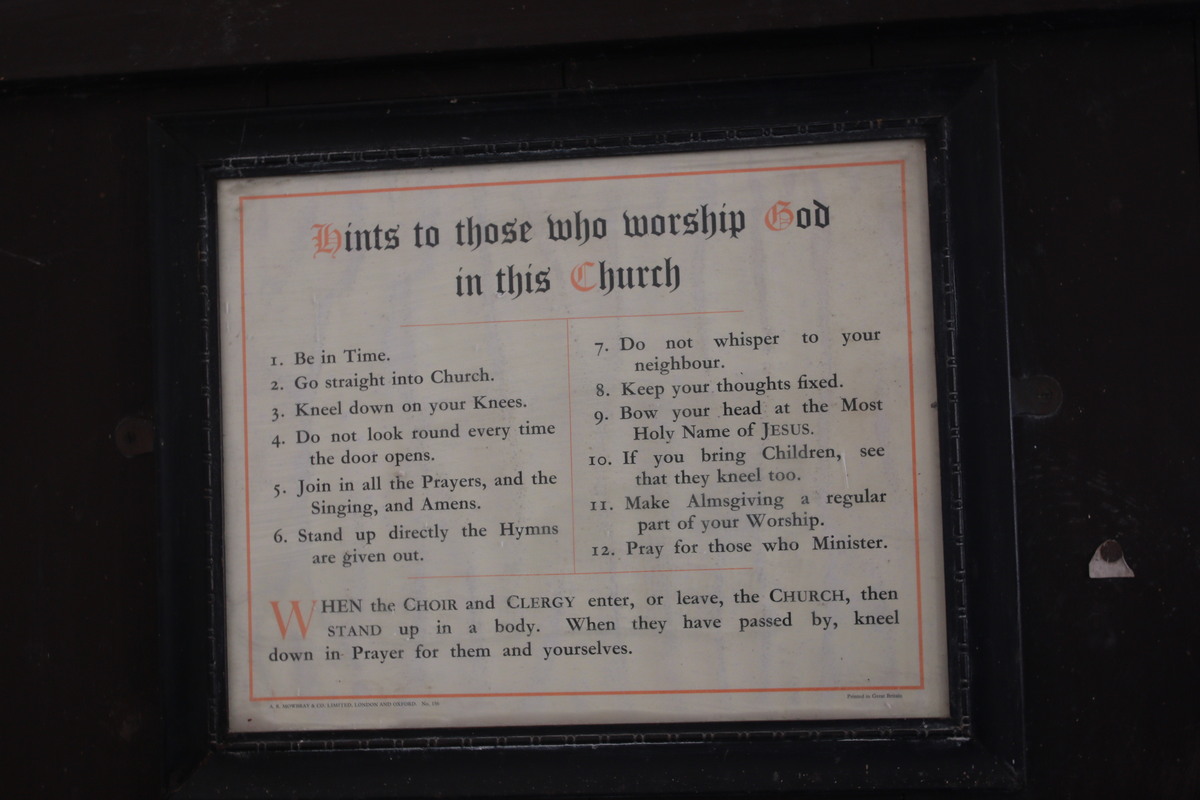 Hints to those who worship God
in this Church
1. Be in Time.
2. Go straight into Church.
3. Kneel down on your Knees.
4. Do not look round every time
the door opens.
5. Join in all the Prayers, and the
Singing, and Amens.
6. Stand up directly the Hymns
are given out.
7. Do not whisper to your
neighbour.
8. Keep your thoughts fixed.
9. Bow your head at the Most
Holy Name of JESUS.
10. If you bring Children, see
that they kneel too.
11. Make Almsgiving a regular
part of your Worship.
12. Pray for those who Minister.
WHEN the CHOIR and CLERGY enter, or leave, the CHURCH, then
STAND up in a body. When they have passed by, kneel
down in Prayer for them and yourselves.
A. R. MOWBRAY & CO. LIMITED, LONDON AND OXFORD. No.
Printed in Great Britain